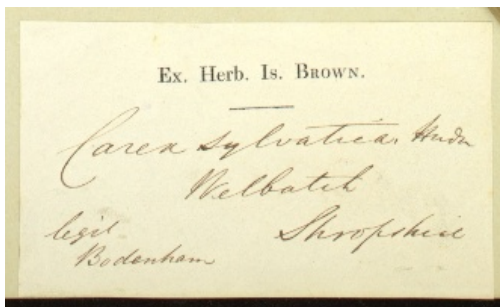 Ex. Herb. Is. Brown.
Carex sylvatica. Huds
Welbatch
Shropshire
legit
Bodenham